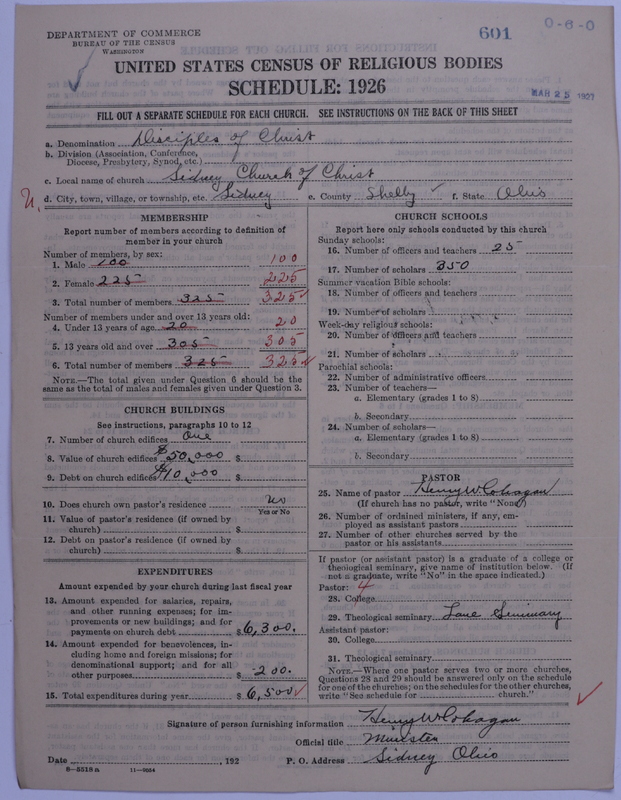 DEPARTMENT OF COMMERCE
BUREAU OF THE CENSUS
WASHINGTON
601
0-6-0
UNITED STATES CENSUS OF RELIGIOUS BODIES
SCHEDULE: 1926
MAR 25 1927
FILL OUT A SEPARATE SCHEDULE FOR EACH CHURCH. SEE INSTRUCTIONS ON THE BACK OF THIS SHEET
a. Denomination Disciples of Christ
b. Division (Association, Conference, Diocese, Presbytery, Synod, etc.)
c. Local name of church Sidney Church of Christ
d. City, town, village, or township, etc. Sidney e. County Shelby f. State Ohio
U.
MEMBERSHIP
Report number of members according to definition of member in your church
Number of members, by sex:
1. Male 100 100
2. Female 225 225
3. Total number of members 325 325
Number of members under and over 13 years old:
4. Under 13 years of age 20 20
5. 13 years old and over 305 305
6. Total number of members 325 325
NOTE.—The total given under Question 6 should be the same as the total of males and females given under Question 3.
CHURCH BUILDINGS
See instructions, paragraphs 10 to 12
7. Number of church edifices One
8. Value of church edifices $50,000 $
9. Debt on church edifices $10,000 $
10. Does church own pastor's residence no
Yes or No
11. Value of pastor's residence (if owned by church) $
12. Debt on pastor's residence (if owned by church) $
EXPENDITURES
Amount expended by your church during last fiscal year
13. Amount expended for salaries, repairs, and other running expenses; for improvements or new buildings; and for payments on church debt $6,300.
14. Amount expended for benevolences, including home and foreign missions; for denominational support; and for all other purposes $200.
15. Total expenditures during year $6,500
CHURCH SCHOOLS
Report here only schools conducted by this church
Sunday schools:
16. Number of officers and teachers 25
17. Number of scholars 350
Summer vacation Bible schools:
18. Number of officers and teachers
19. Number of scholars
Week-day religious schools:
20. Number of officers and teachers
21. Number of scholars
Parochial schools:
22. Number of administrative officers
23. Number of teachers—
a. Elementary (grades 1 to 8)
b. Secondary
24. Number of scholars—
a. Elementary (grades 1 to 8)
b. Secondary
PASTOR
25. Name of pastor Henry W Cohagan
(If church has no pastor, write "None")
26. Number of ordained ministers, if any, employed as assistant pastors
27. Number of other churches served by the pastor or his assistants
If pastor (or assistant pastor) is a graduate of a college or theological seminary, give name of institution below. (If not a graduate, write "No" in the space indicated.)
Pastor: 4
28. College
29. Theological seminary Lane Seminary
Assistant pastor:
30. College
31. Theological seminary
NOTE.—Where one pastor serves two or more churches, Questions 28 and 29 should be answered only on the schedule for one of the churches; on the schedules for the other churches, write "See schedule for church."
Signature of person furnishing information Henry W Cohagan
Official title Minister
Date , 192 P. O. Address Sidney Ohio
8—5518a 11—9054